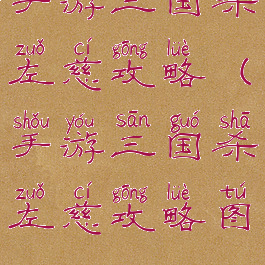 手游三国杀
zuǒ cí gōng luè
左慈攻略（
shǒu yóu sān guó shā
手游三国杀
zuǒ cí gōng luè tú
左慈攻略图